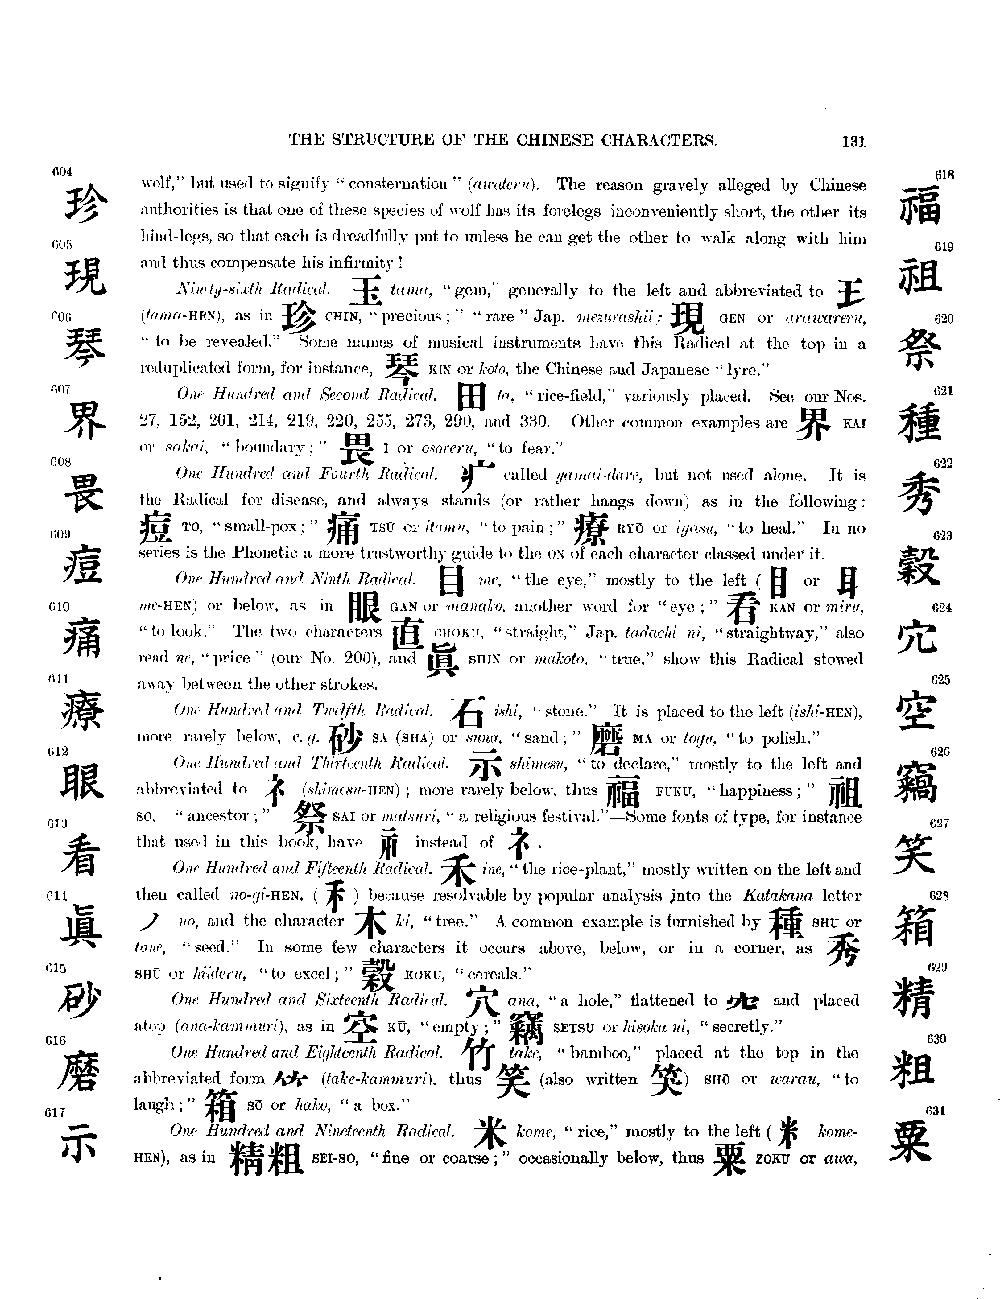 THE STRUCTURE OF THE CHINESE CHARACTERS. 131
604
珍
605
現
606
琴
607
界
608
畏
609
痘
610
痛
611
療
612
眼
613
看
614
眞
615
砂
616
磨
617
示
wolf,” but used to signify “consternation” (awateru). The reason gravely alleged by Chinese
authorities is that one of these species of wolf has its forelegs inconveniently short, the other its
hind-legs, so that each is dreadfully put to unless he can get the other to walk along with him
and thus compensate his infirmity!
Ninety-sixth Radical. 玉 tama, “gem,” generally to the left and abbreviated to 王
(tama-HEN), as in 珍 CHIN, “precious;” “rare” Jap. mezurashii; 現 GEN or arawareru,
“to be revealed.” Some names of musical instruments have this Radical at the top in a
reduplicated form, for instance, 琴 KIN or koto, the Chinese and Japanese “lyre.”
One Hundred and Second Radical. 田 ta, “rice-field,” variously placed. See our Nos.
27, 152, 201, 214, 219, 220, 255, 273, 290, and 330. Other common examples are 界 KAI
or sakai, “boundary;” 畏 I or osoreru, “to fear.”
One Hundred and Fourth Radical. 疒 called yamai-dare, but not used alone. It is
the Radical for disease, and always stands (or rather hangs down) as in the following:
痘 TO, “small-pox;” 痛 TSŪ or itamu, “to pain;” 療 RYŌ or iyasu, “to heal.” In no
series is the Phonetic a more trustworthy guide to the ON of each character classed under it.
One Hundred and Ninth Radical. 目 me, “the eye,” mostly to the left (目 or
me-HEN) or below, as in 眼 GAN or manako, another word for “eye;” 看 KAN or miru,
“to look.” The two characters 直 CHOKU, “straight,” Jap. tadachi ni, “straightway,” also
read ne, “price” (our No. 200), and 眞 SHIN or makoto, “true,” show this Radical stowed
away between the other strokes.
One Hundred and Twelfth Radical. 石 ishi, “stone.” It is placed to the left (ishi-HEN),
more rarely below, e.g. 砂 SA (SHA) or suna, “sand;” 磨 MA or togu, “to polish.”
One Hundred and Thirteenth Radical. 示 shimesu, “to declare,” mostly to the left and
abbreviated to 礻 (shimesu-HEN); more rarely below, thus 福 FUKU, “happiness;” 祖
SO, “ancestor;” 祭 SAI or matsuri, “a religious festival.”—Some fonts of type, for instance
that used in this book, have 示 instead of 礻.
One Hundred and Fifteenth Radical. 禾 ine, “the rice-plant,” mostly written on the left and
then called no-gi-HEN, (禾) because resolvable by popular analysis into the Katakana letter
ノ no, and the character 木 ki, “tree.” A common example is furnished by 種 SHU or
tane, “seed.” In some few characters it occurs above, below, or in a corner, as 秀
SHŪ or hideru, “to excel;” 穀 KOKU, “cereals.”
One Hundred and Sixteenth Radical. 穴 ana, “a hole,” flattened to 穴 and placed
atop (ana-kammuri), as in 空 KŪ, “empty;” 竊 SETSU or hisoka ni, “secretly.”
One Hundred and Eighteenth Radical. 竹 take, “bamboo,” placed at the top in the
abbreviated form ⺮ (take-kammuri), thus 笑 (also written 笑) SHŌ or warau, “to
laugh;” 箱 SŌ or hako, “a box.”
One Hundred and Nineteenth Radical. 米 kome, “rice,” mostly to the left (米 kome-
HEN), as in 精粗 SEI-SO, “fine or coarse;” occasionally below, thus 粟 ZOKU or awa,
618
福
619
祖
620
祭
621
種
622
秀
623
穀
624
穴
625
空
626
竊
627
笑
628
箱
629
精
630
粗
631
粟